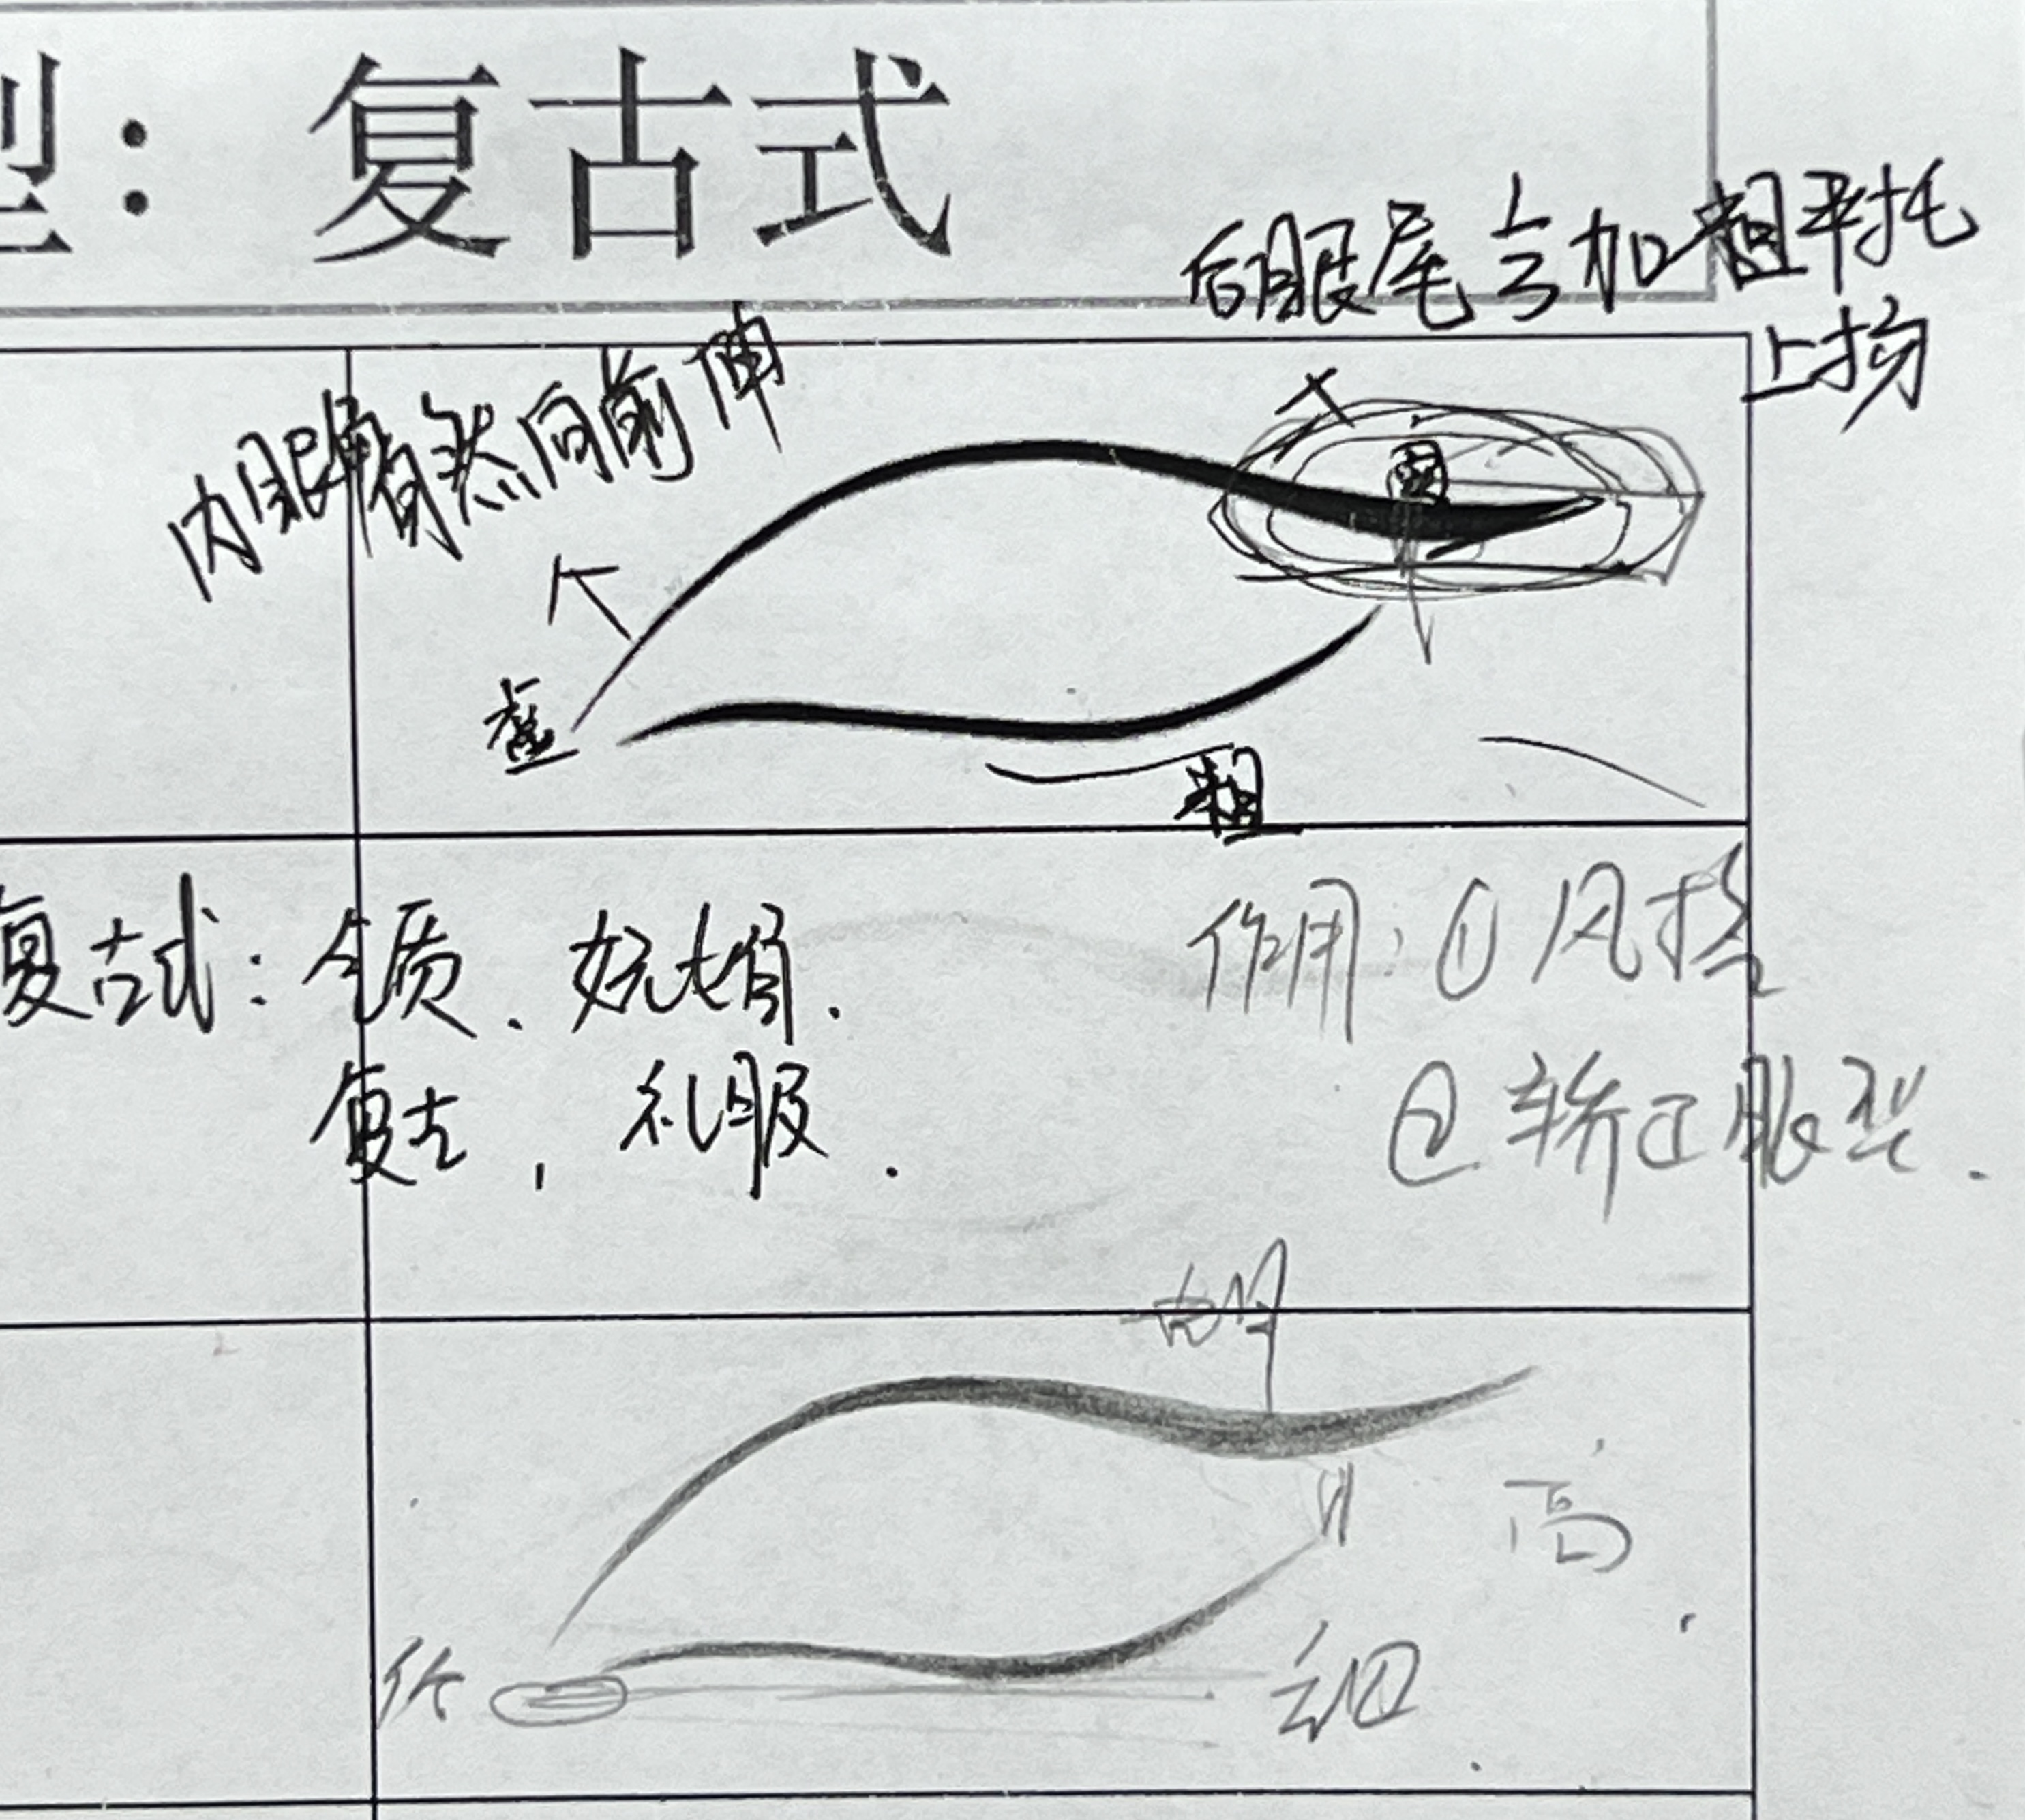 型：复古式
后眼尾与加粗平拉
上扬
内眼角自然向前伸
粗
粗
复古式：气质、妩媚.
复古，礼服.
作用：①风格
②矫正眼型.
高
低
细